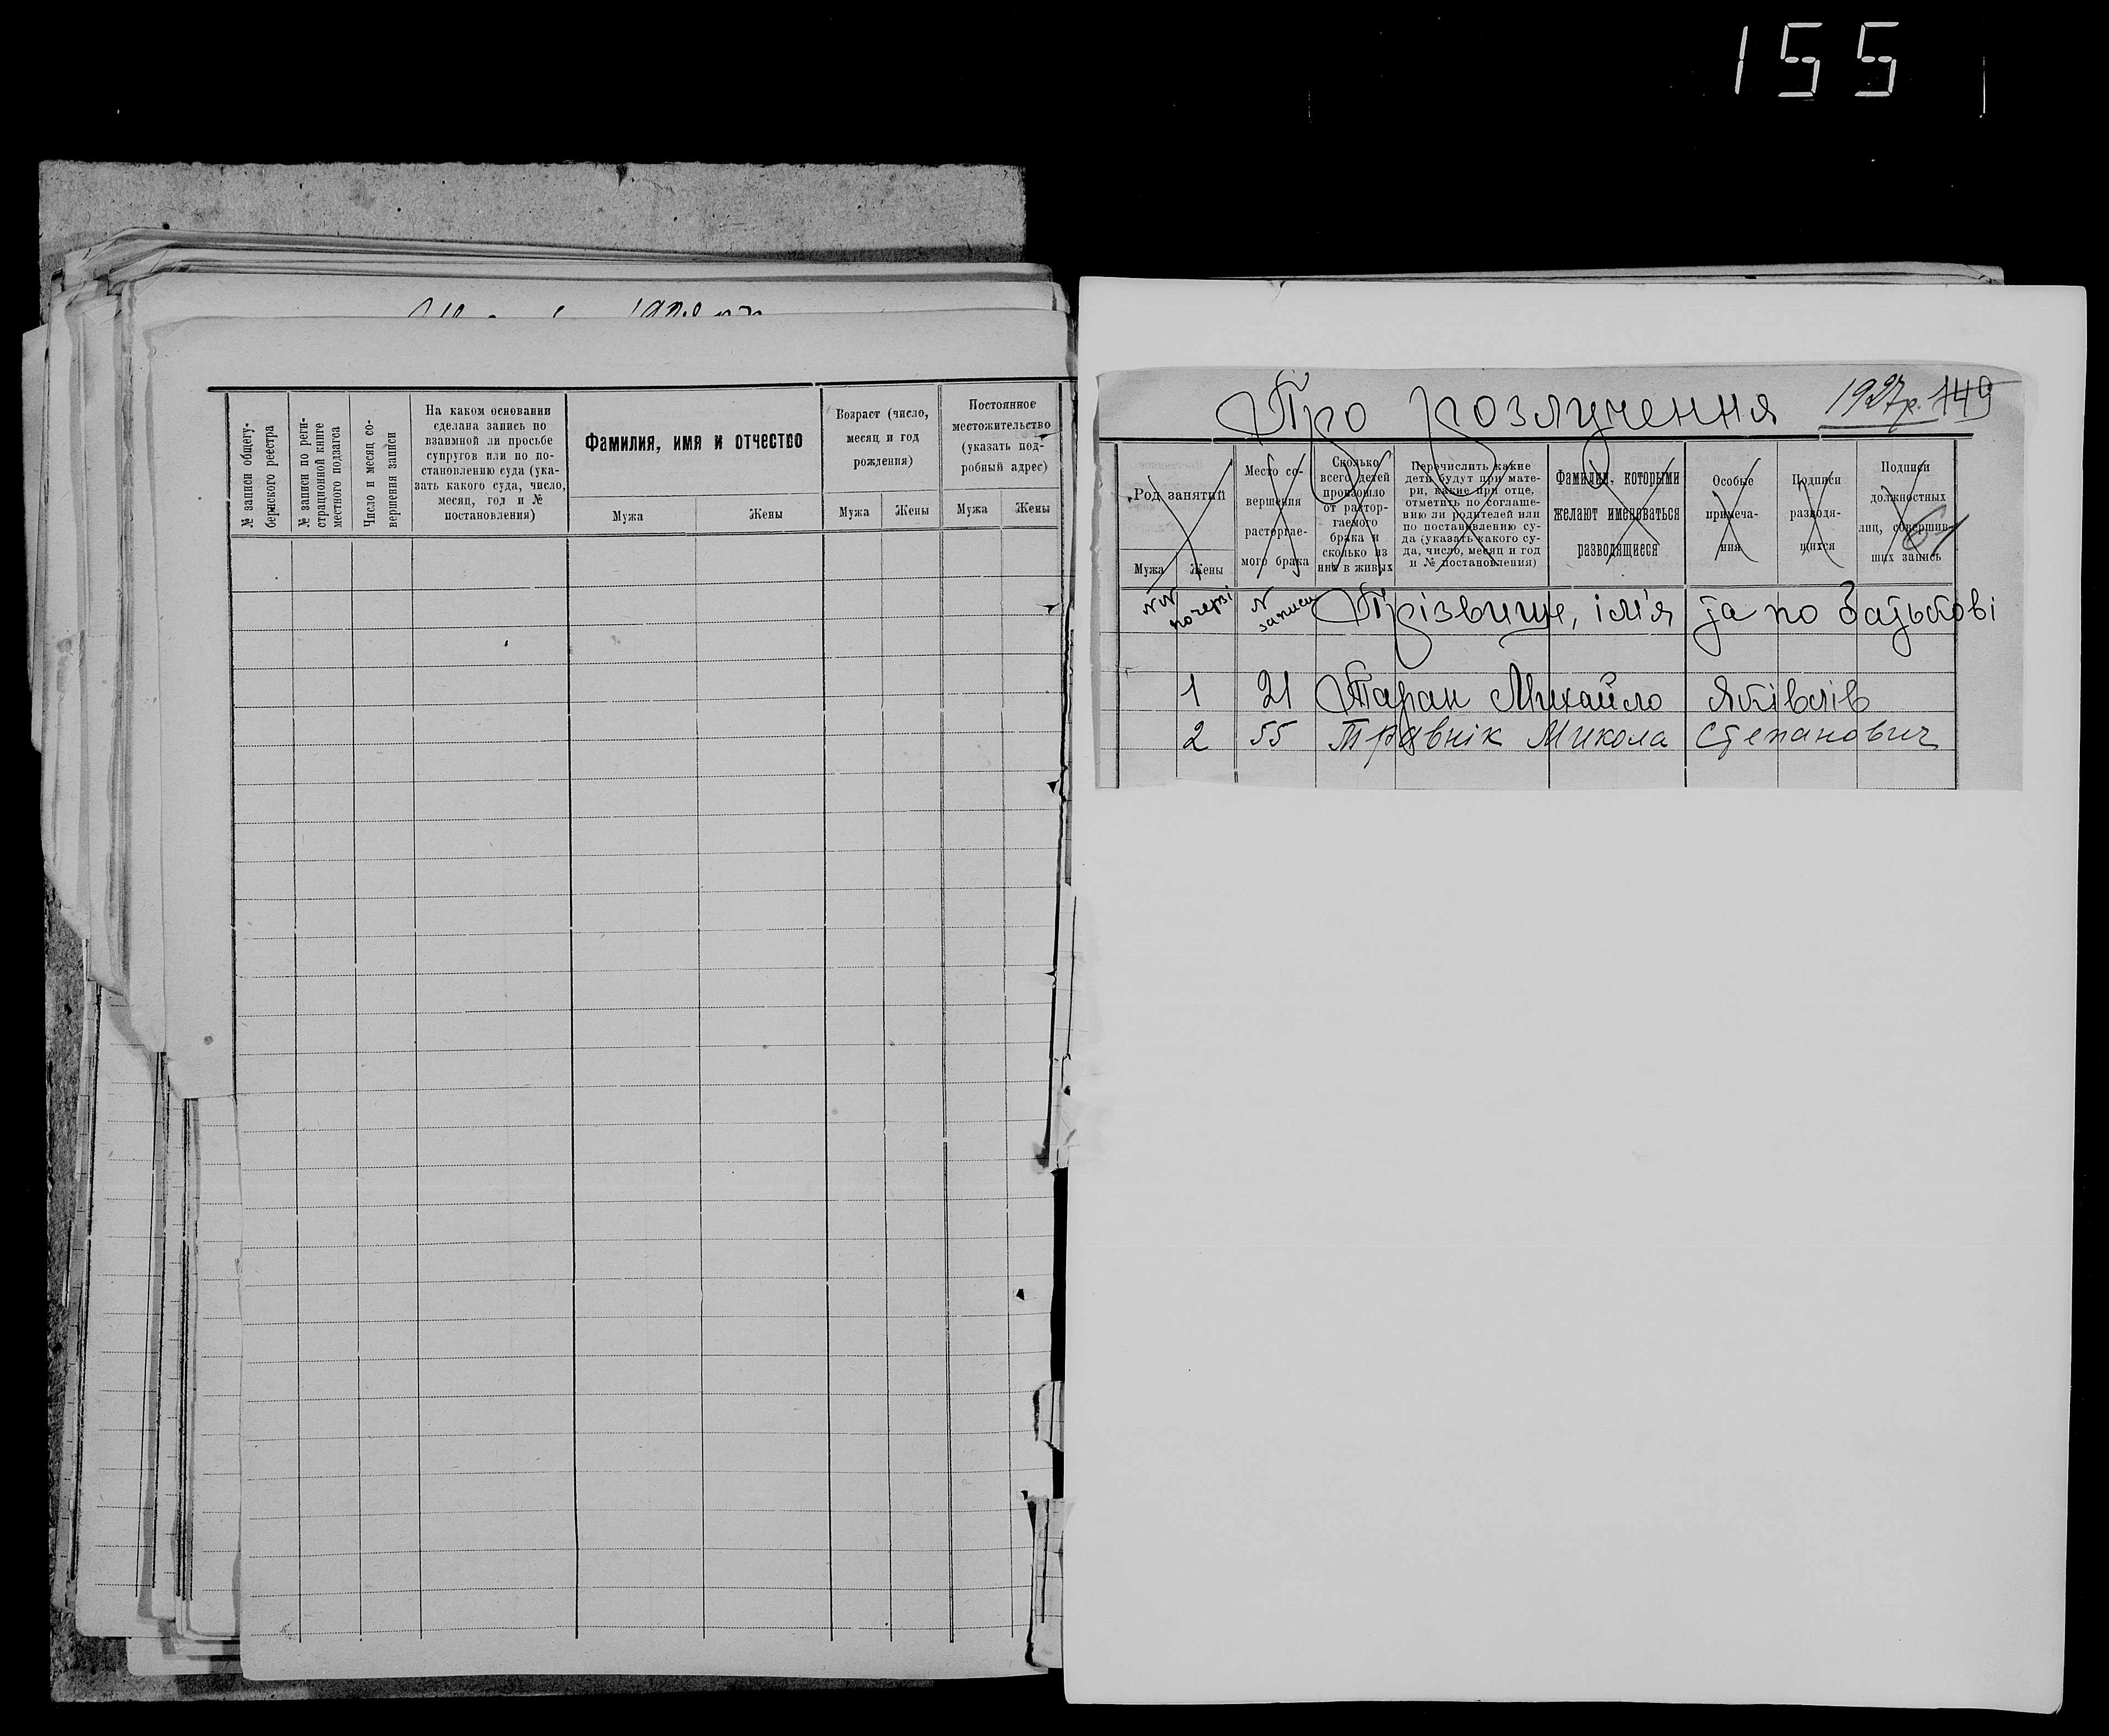 155
№ записи общегу-
бернского реестра
№ записи по реги-
страционной книге
местного подзагса
Число и месяц со-
вершения записи
На каком основании
сделана запись по
взаимной ли просьбе
супругов или по по-
становлению суда (ука-
зать какого суда, число,
месяц, год и №
постановления)
Фамилия, имя и отчество
Мужа Жены
Возраст (число,
месяц и год
рождения)
Мужа Жены
Постоянное
местожительство
(указать под-
робный адрес)
Мужа Жены
Про розлучення 1927р. 149
Род занятий
Мужа Жены
Место со-
вершения
расторгае-
мого брака
Сколько
всего детей
произошло
от растор-
гаемого
брака и
сколько из
них в живых
Перечислить какие
дети будут при мате-
ри, какие при отце,
отметить по соглаше-
нию ли родителей или
по постановлению су-
да (указать какого су-
да, число, месяц и год
и № постановления)
Фамилии, которыми
желают именоваться
разводящиеся
Особые
примеча-
ния
Подписи
разводя-
щихся
Подписи
должностных
лиц, совершив-
ших запись
61
NN по черзі N записи Прізвище, ім'я та по батькові
1 21 Таран Михайло Яківлів
2 55 Травнік Микола Степанович